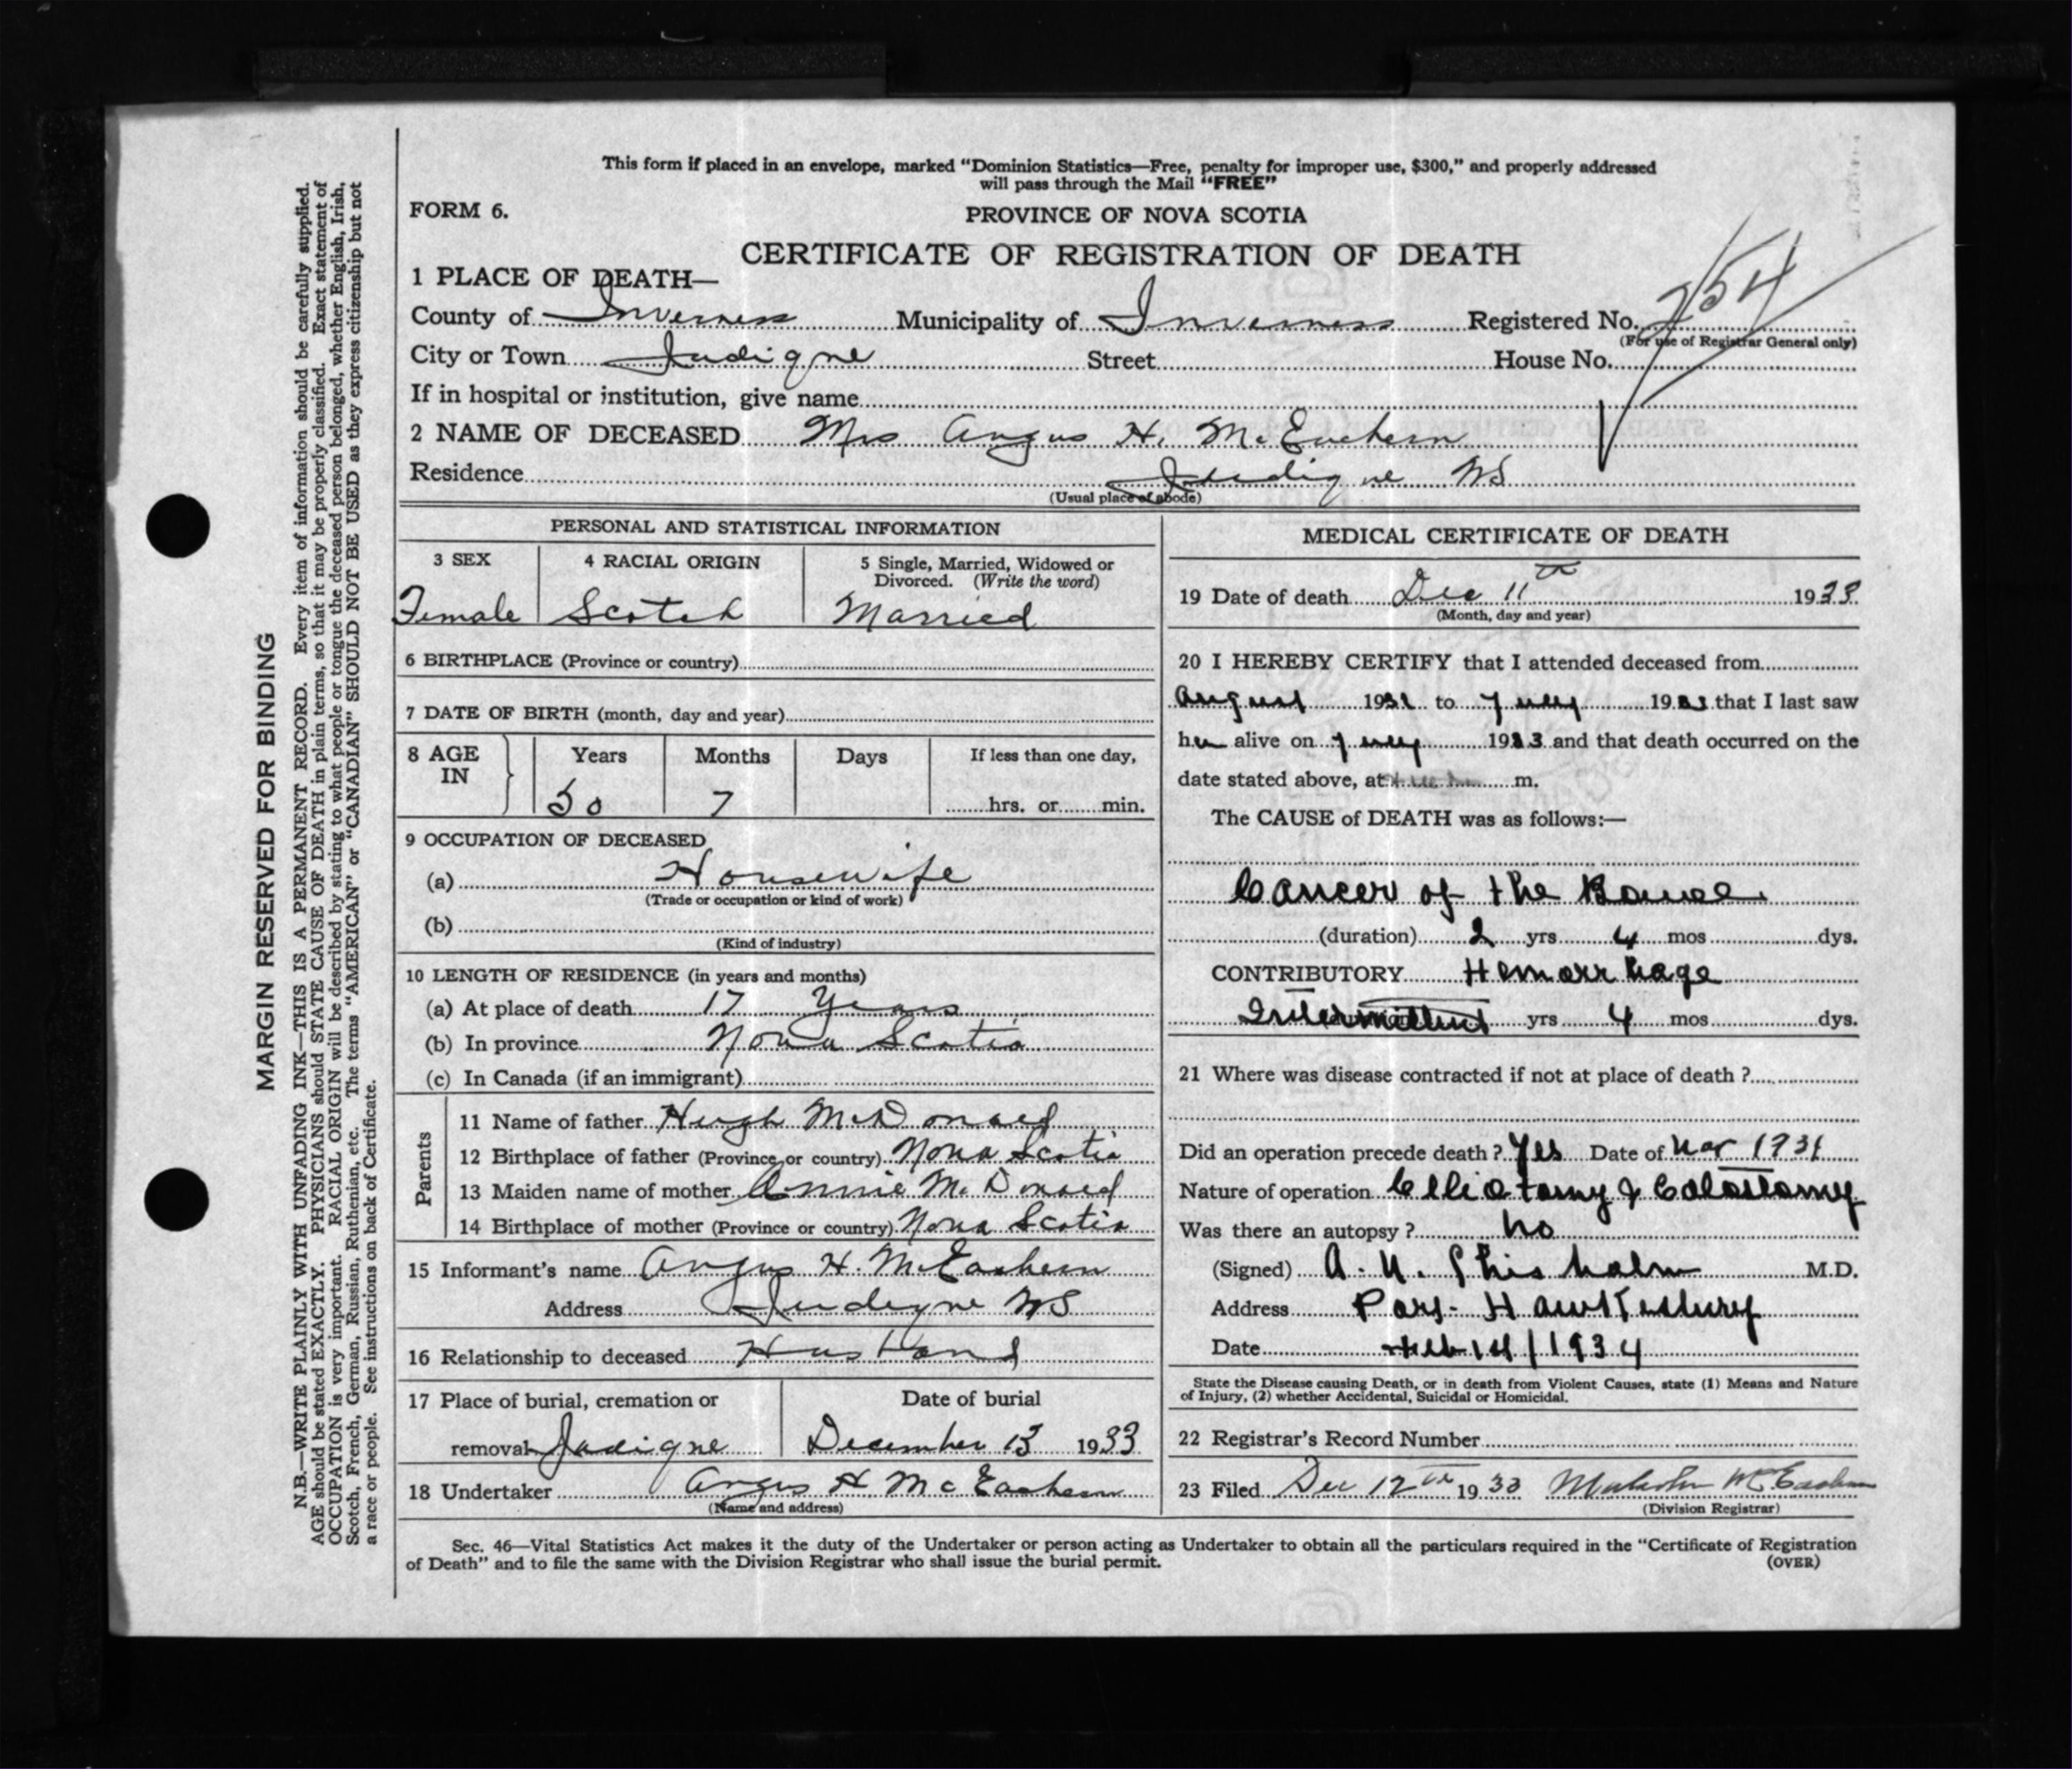 This form if placed in an envelope, marked “Dominion Statistics—Free, penalty for improper use, $300,” and properly addressed
will pass through the Mail “FREE”
FORM 6.
PROVINCE OF NOVA SCOTIA
CERTIFICATE OF REGISTRATION OF DEATH
1 PLACE OF DEATH—
County of Inverness Municipality of Inverness Registered No. 254
(For use of Registrar General only)
City or Town Judique Street House No.
If in hospital or institution, give name
2 NAME OF DECEASED Mrs Angus H. McEachern
Residence Judique NS
(Usual place of abode)
PERSONAL AND STATISTICAL INFORMATION
3 SEX 4 RACIAL ORIGIN 5 Single, Married, Widowed or
Divorced. (Write the word)
Female Scotch Married
6 BIRTHPLACE (Province or country)
7 DATE OF BIRTH (month, day and year)
8 AGE IN Years Months Days If less than one day,
50 7 hrs. or min.
9 OCCUPATION OF DECEASED
(a) Housewife
(Trade or occupation or kind of work)
(b)
(Kind of industry)
10 LENGTH OF RESIDENCE (in years and months)
(a) At place of death 17 Years
(b) In province Nova Scotia
(c) In Canada (if an immigrant)
Parents
11 Name of father Hugh McDonald
12 Birthplace of father (Province or country) Nova Scotia
13 Maiden name of mother Annie McDonald
14 Birthplace of mother (Province or country) Nova Scotia
15 Informant's name Angus H. McEachern
Address Judique NS
16 Relationship to deceased Husband
17 Place of burial, cremation or Date of burial
removal Judique December 13 1933
18 Undertaker Angus H McEachern
(Name and address)
MEDICAL CERTIFICATE OF DEATH
19 Date of death Dec 11th 1933
(Month, day and year)
20 I HEREBY CERTIFY that I attended deceased from
August 193 to July 19 that I last saw
her alive on July 1933 and that death occurred on the
date stated above, at m.
The CAUSE of DEATH was as follows:—
Cancer of the Bowel
(duration) 2 yrs 4 mos dys.
CONTRIBUTORY Hemorrhage
Intermittent yrs 4 mos dys.
21 Where was disease contracted if not at place of death ?
Did an operation precede death ? Yes Date of 1931
Nature of operation Celiotomy & Colostomy
Was there an autopsy ? no
(Signed) A. Chisholm M.D.
Address Port Hawkesbury
Date Feb 14/1934
State the Disease causing Death, or in death from Violent Causes, state (1) Means and Nature
of Injury, (2) whether Accidental, Suicidal or Homicidal.
22 Registrar's Record Number
23 Filed Dec 12th 1933 Malcolm McEachern
(Division Registrar)
Sec. 46—Vital Statistics Act makes it the duty of the Undertaker or person acting as Undertaker to obtain all the particulars required in the “Certificate of Registration
of Death” and to file the same with the Division Registrar who shall issue the burial permit. (OVER)
MARGIN RESERVED FOR BINDING
N.B.—WRITE PLAINLY WITH UNFADING INK—THIS IS A PERMANENT RECORD. Every item of information should be carefully supplied.
AGE should be stated EXACTLY. PHYSICIANS should STATE CAUSE OF DEATH in plain terms, so that it may be properly classified. Exact statement of
OCCUPATION is very important. RACIAL ORIGIN will be described by stating to what people or tongue the deceased person belonged, whether English, Irish,
Scotch, French, German, Russian, Ruthenian, etc. The terms “AMERICAN” or “CANADIAN” SHOULD NOT BE USED as they express citizenship but not
a race or people. See instructions on back of Certificate.